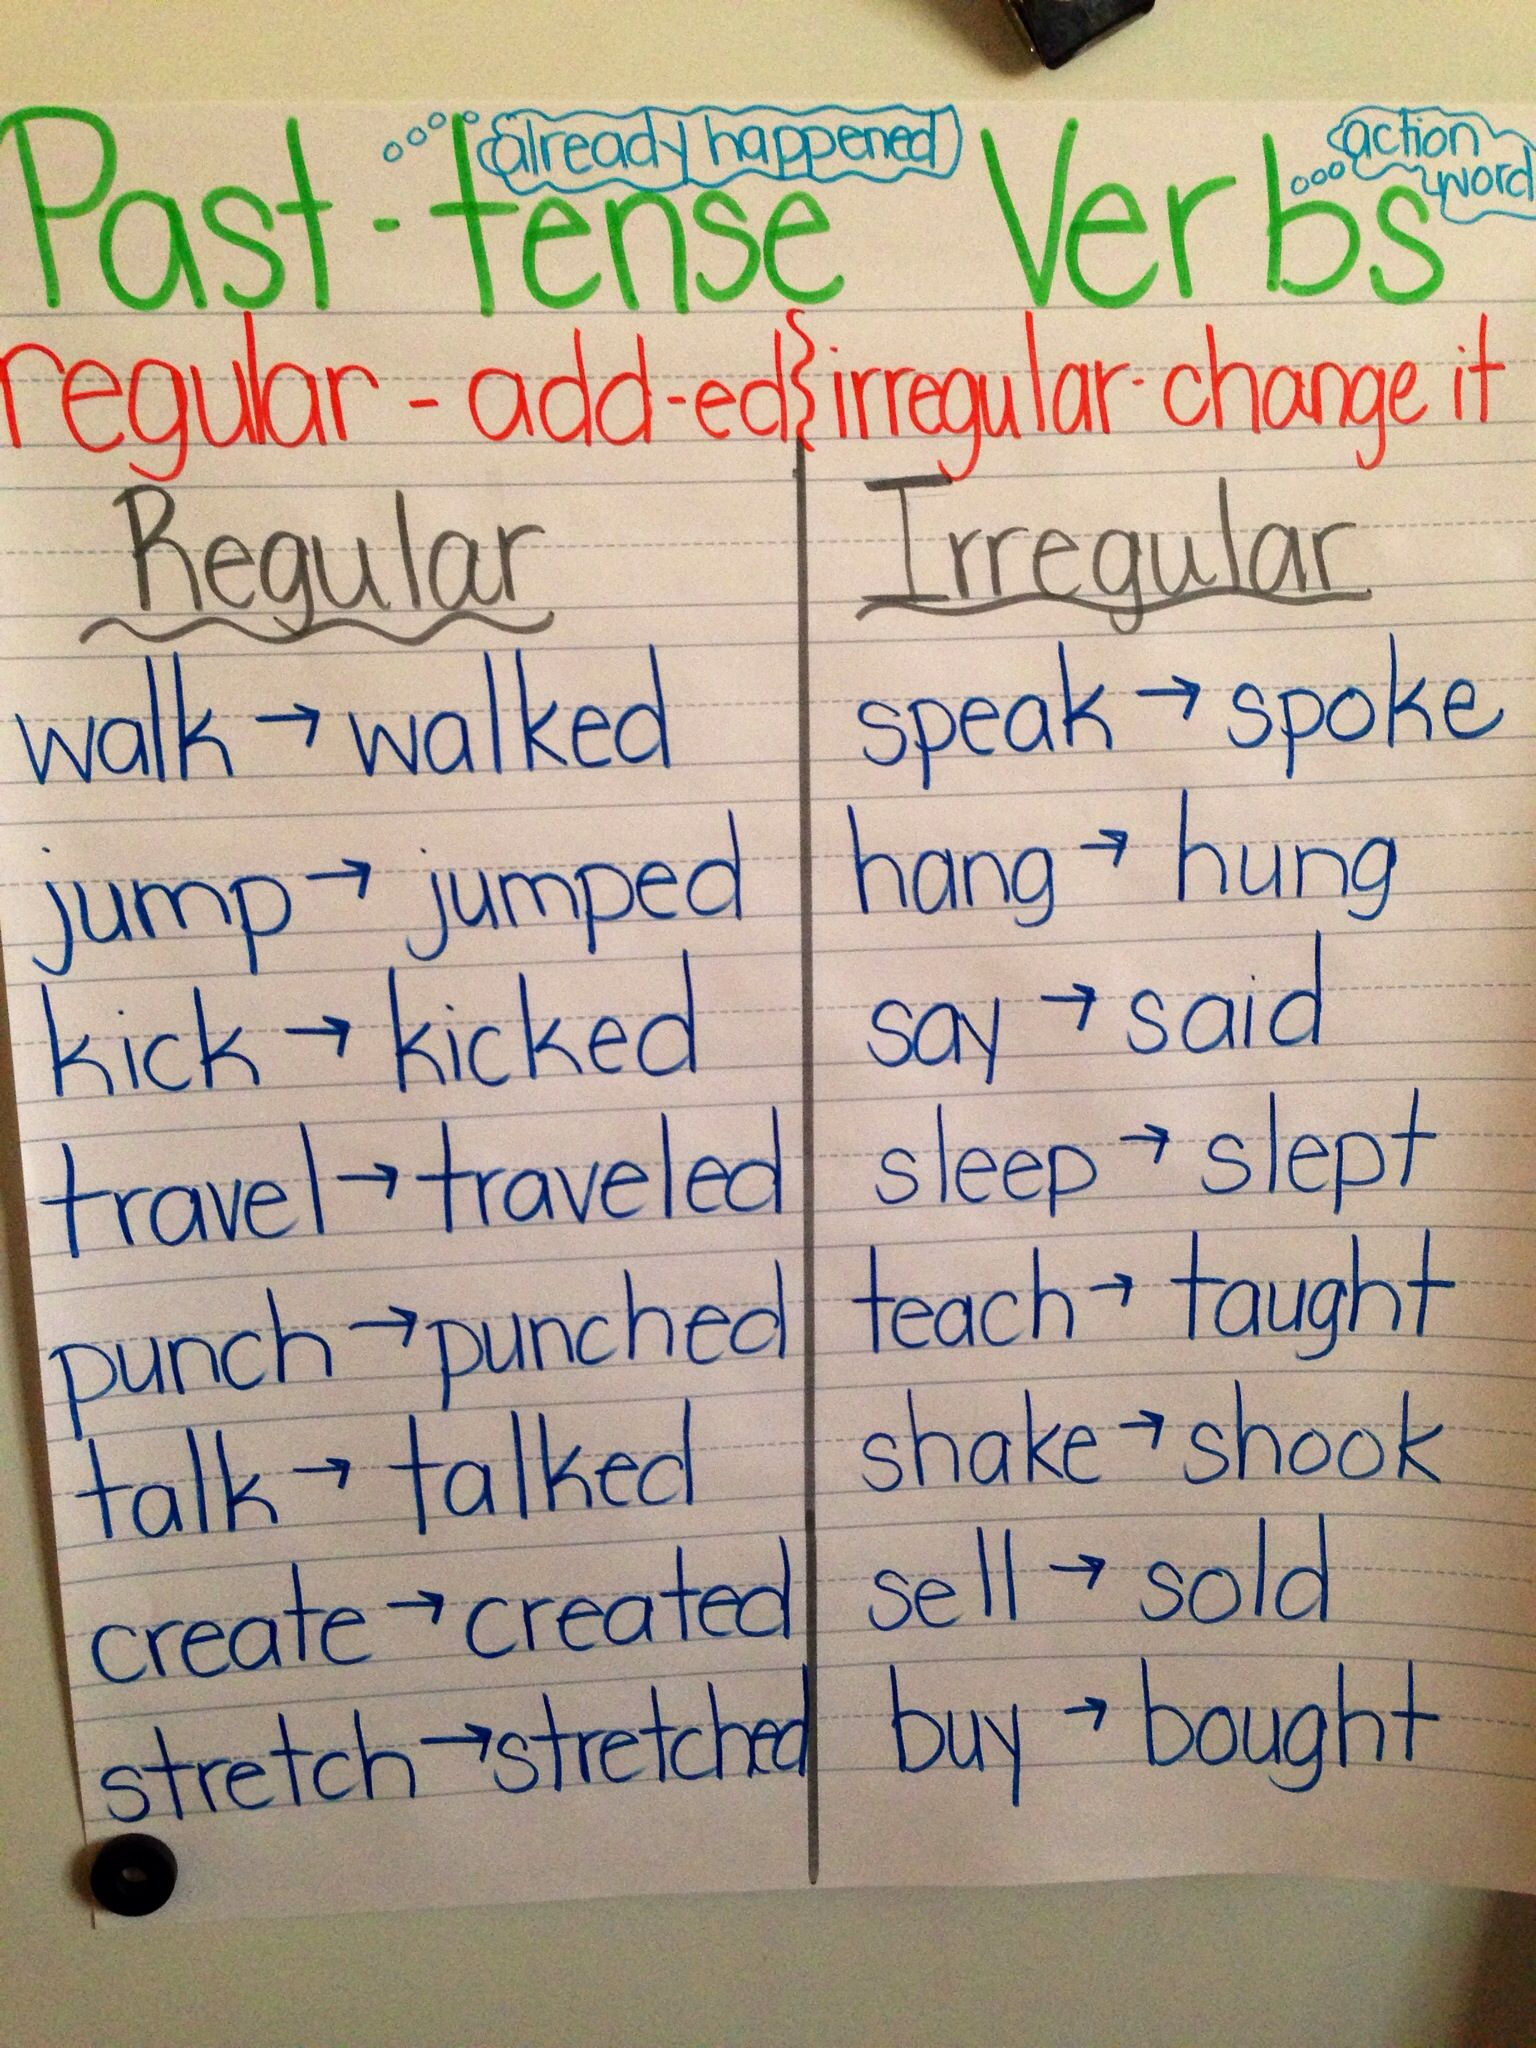 already happened
action
word
Past-tense Verbs
regular - add -ed}irregular-change it
Regular
Irregular
walk → walked
speak → spoke
jump → jumped
hang → hung
kick → kicked
say → said
travel → traveled
sleep → slept
punch → punched
teach → taught
talk → talked
shake → shook
create → created
sell → sold
stretch → stretched
buy → bought